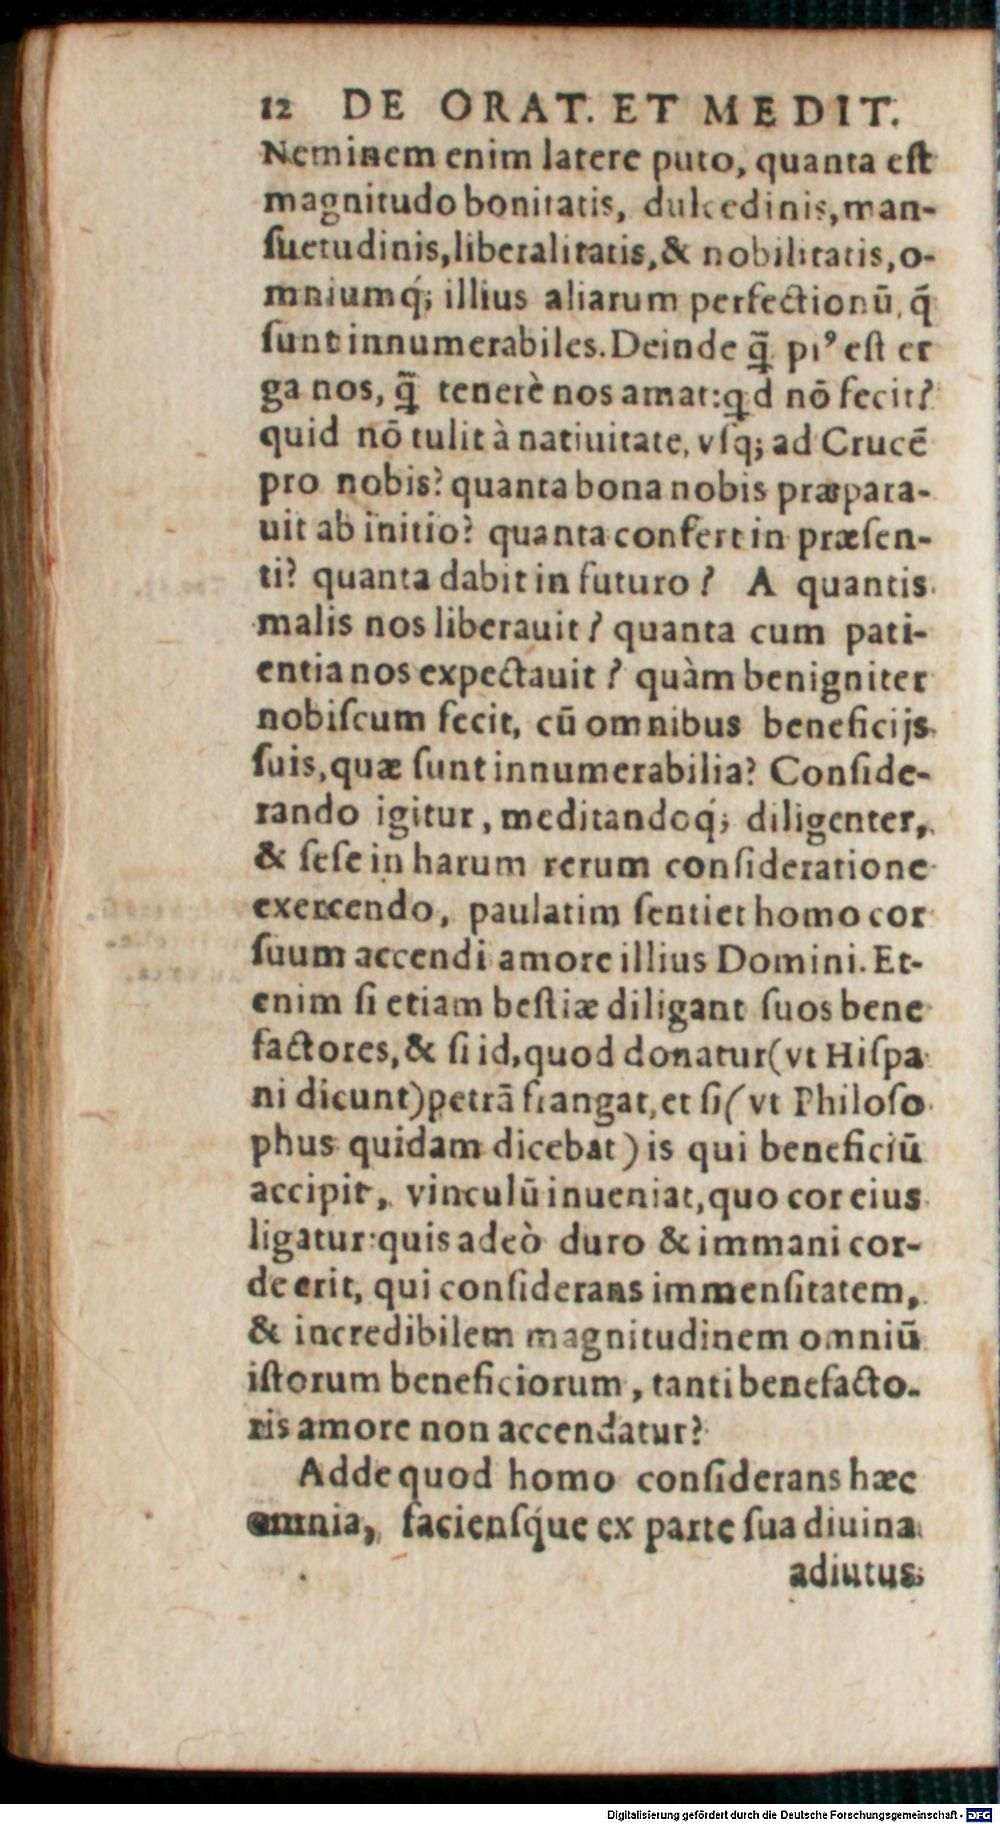 12 DE ORAT. ET MEDIT.
Neminem enim latere puto, quanta eſt
magnitudo bonitatis, dulcedinis, man-
ſuetudinis, liberalitatis, & nobilitatis, o-
mniumq́; illius aliarum perfectionū, q̄
ſunt innumerabiles. Deinde ꝗ̃ piꝰ eſt er
ga nos, ꝗ̃ tenerè nos amat: ꝗd nō fecit?
quid nō tulit à natiuitate, vſq; ad Crucē
pro nobis? quanta bona nobis præpara-
uit ab initio? quanta confert in præſen-
ti? quanta dabit in futuro? A quantis
malis nos liberauit? quanta cum pati-
entia nos expectauit? quàm benigniter
nobiſcum fecit, cū omnibus beneficijs
ſuis, quæ ſunt innumerabilia? Conſide-
rando igitur, meditandoq́; diligenter,
& ſeſe in harum rerum conſideratione
exercendo, paulatim ſentiet homo cor
ſuum accendi amore illius Domini. Et-
enim ſi etiam beſtiæ diligant ſuos bene
factores, & ſi id, quod donatur (vt Hiſpa
ni dicunt) petrā frangat, et ſi (vt Philoſo
phus quidam dicebat) is qui beneficiū
accipit, vinculū inueniat, quo cor eius
ligatur: quis adeò duro & immani cor-
de erit, qui conſiderans immenſitatem,
& incredibilem magnitudinem omniū
iſtorum beneficiorum, tanti benefacto-
ris amore non accendatur?
Adde quod homo conſiderans hæc
omnia, facienſq́ue ex parte ſua diuina
adiutus
Digitalisierung gefördert durch die Deutsche Forschungsgemeinschaft - DFG